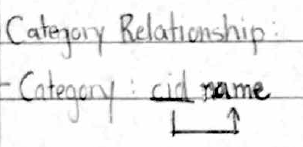 Category Relationship:
- Category: cid name